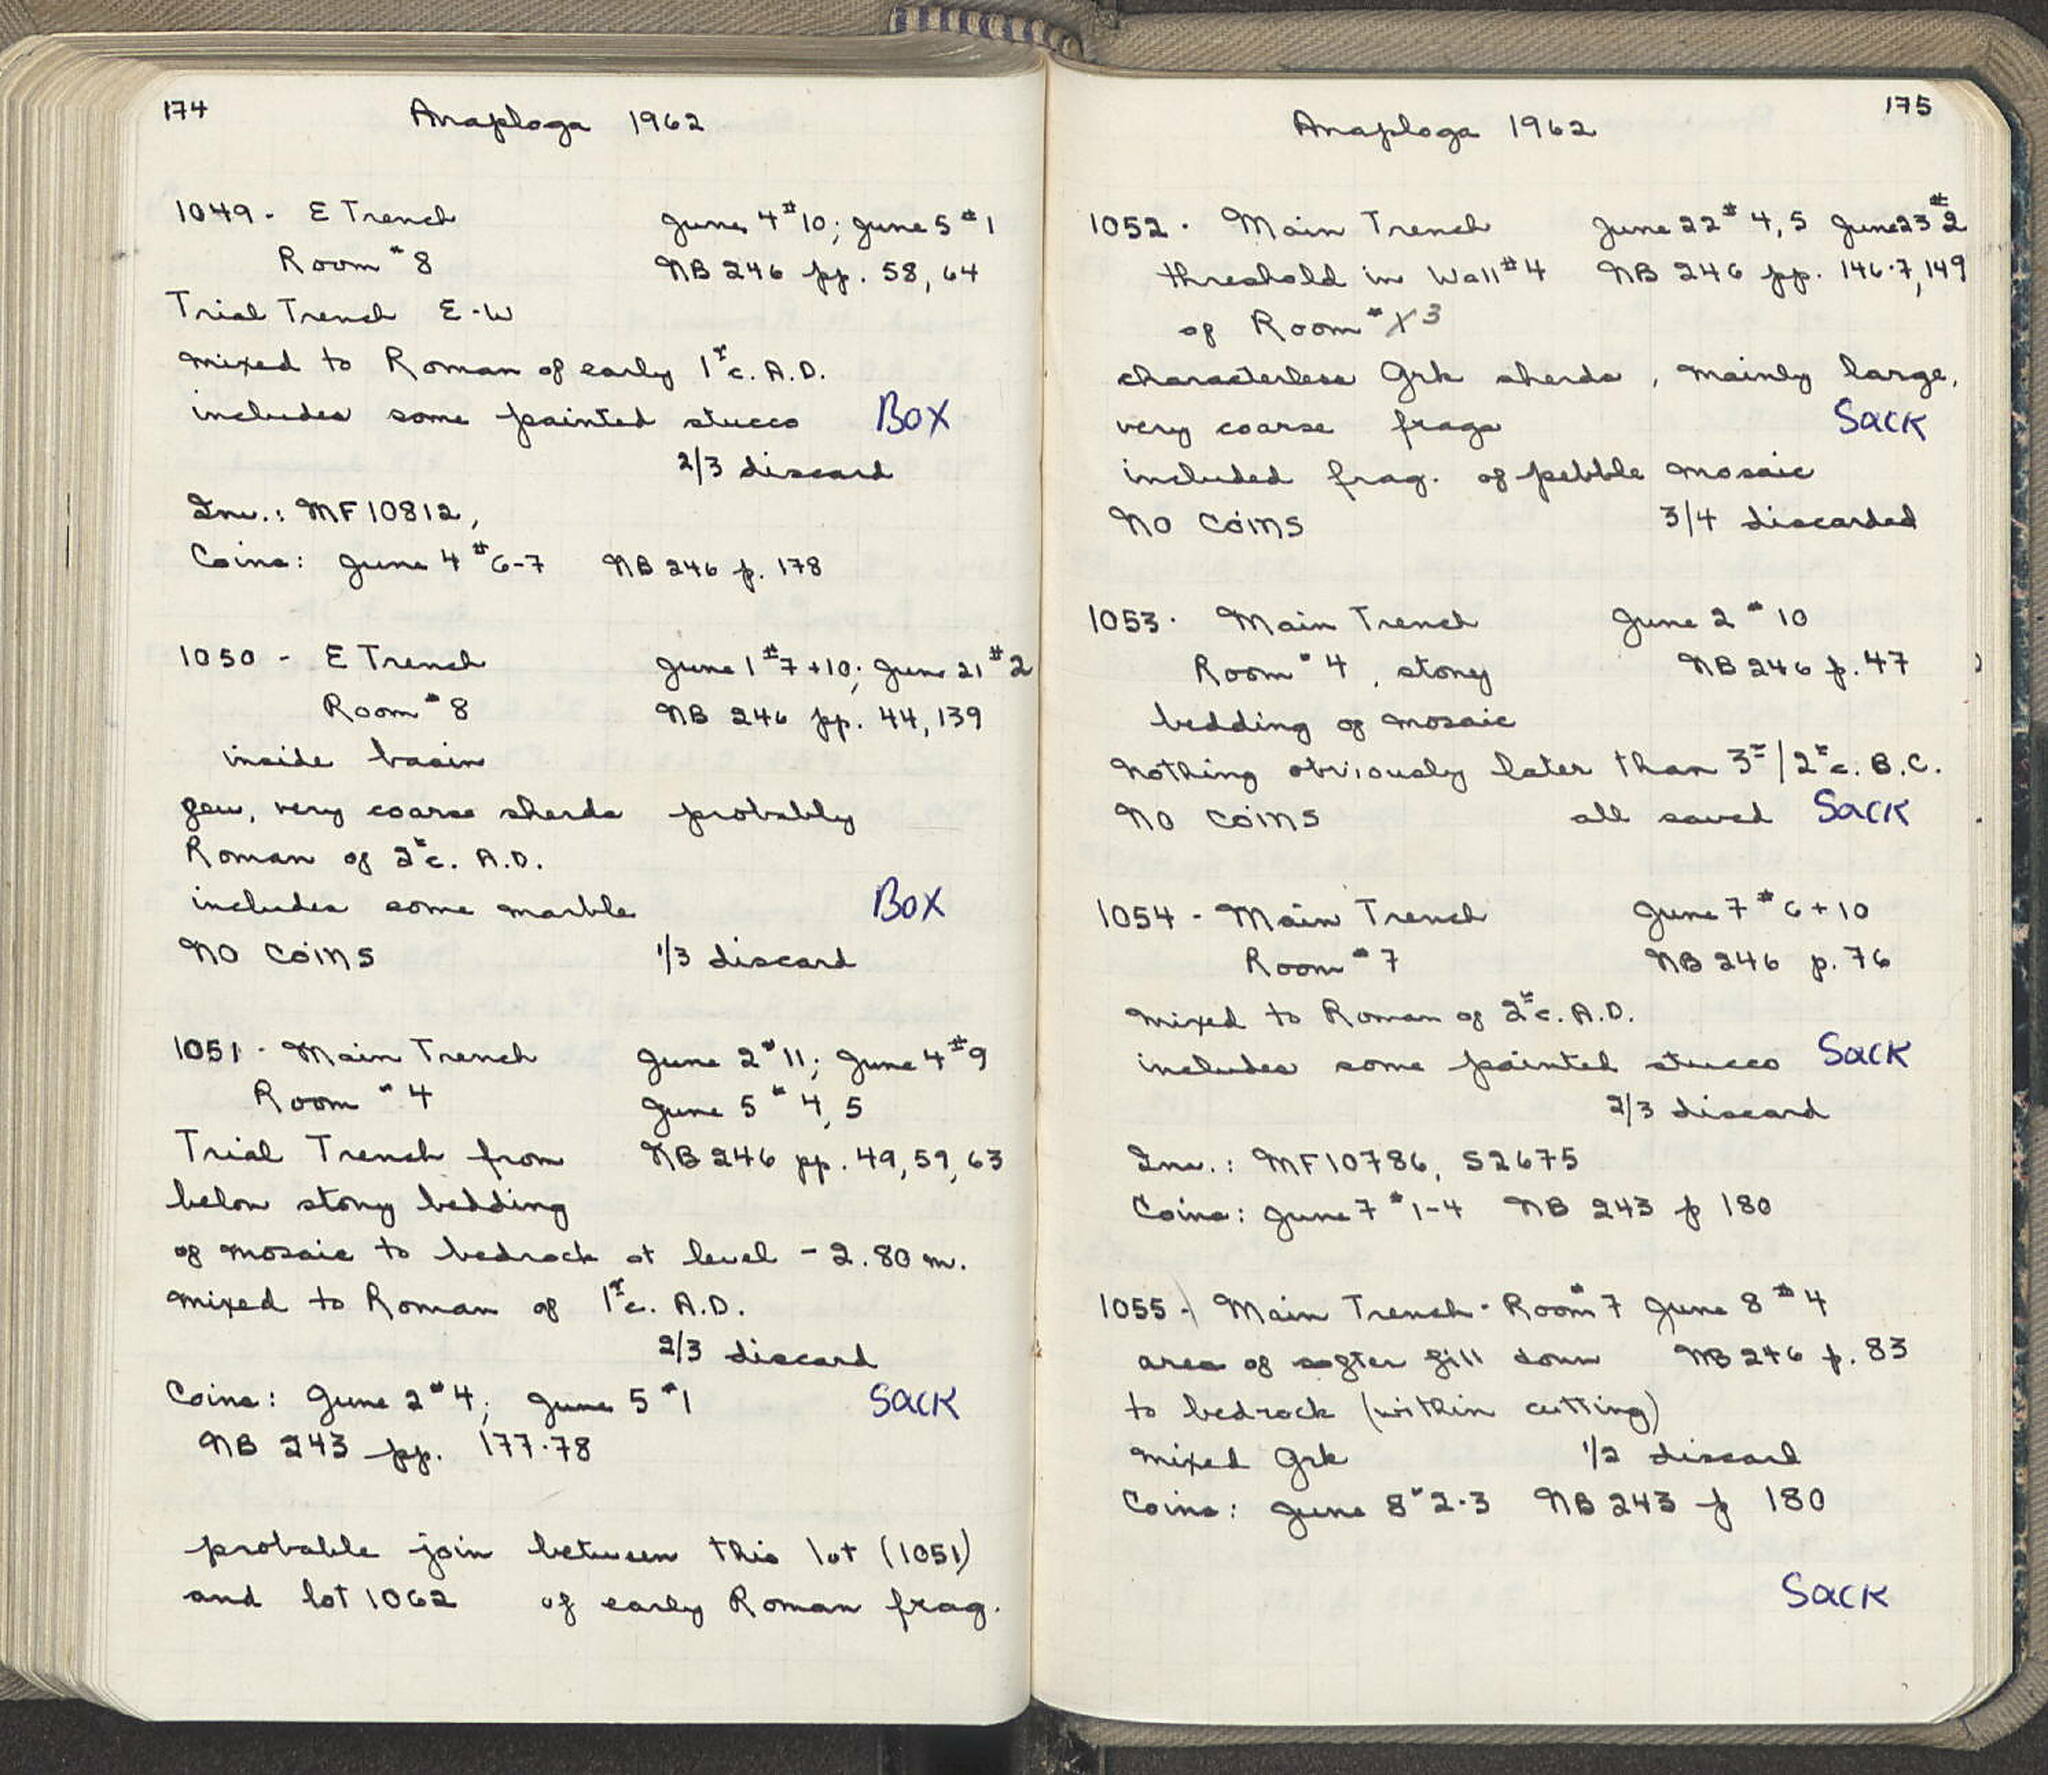 174
Anaploga 1962
1049 - E Trench June 4 #10; June 5 #1
Room #8 NB 246 pp. 58, 64
Trial Trench E-W
mixed to Roman of early 1st c. A.D.
includes some painted stucco BOX
2/3 discard
Inv.: MF 10812,
Coins: June 4 #6-7 NB 246 p. 178
1050 - E Trench June 1 #7+10; June 21 #2
Room #8 NB 246 pp. 44, 139
inside basin
few, very coarse sherds probably
Roman of 2nd c. A.D.
includes some marble BOX
NO COINS 1/3 discard
1051 - Main Trench June 2 #11; June 4 #9
Room #4 June 5 #4, 5
Trial Trench from NB 246 pp. 49, 59, 63
below stony bedding
of mosaic to bedrock at level -2.80 m.
mixed to Roman of 1st c. A.D.
2/3 discard
Coins: June 2 #4; June 5 #1 SACK
NB 243 pp. 177-78
probable join between this lot (1051)
and lot 1062 of early Roman frag.
175
Anaploga 1962
1052 - Main Trench June 22 #4, 5 June 23 #2
threshold in Wall #4 NB 246 pp. 146-7, 149
of Room # 3
characterless Grk sherds, mainly large,
very coarse frags SACK
included frag. of pebble mosaic
NO COINS 3/4 discarded
1053 - Main Trench June 2 #10
Room #4, stony NB 246 p. 47
bedding of mosaic
nothing obviously later than 3rd/2nd c. B.C.
NO COINS all saved SACK
1054 - Main Trench June 7 #6+10
Room #7 NB 246 p. 76
mixed to Roman of 2nd c. A.D.
includes some painted stucco SACK
2/3 discard
Inv.: MF 10786, S2675
Coins: June 7 #1-4 NB 243 p 180
1055 - Main Trench - Room #7 June 8 #4
area of softer fill down NB 246 p. 83
to bedrock (within cutting)
mixed Grk 1/2 discard
Coins: June 8 #2-3 NB 243 p 180
SACK